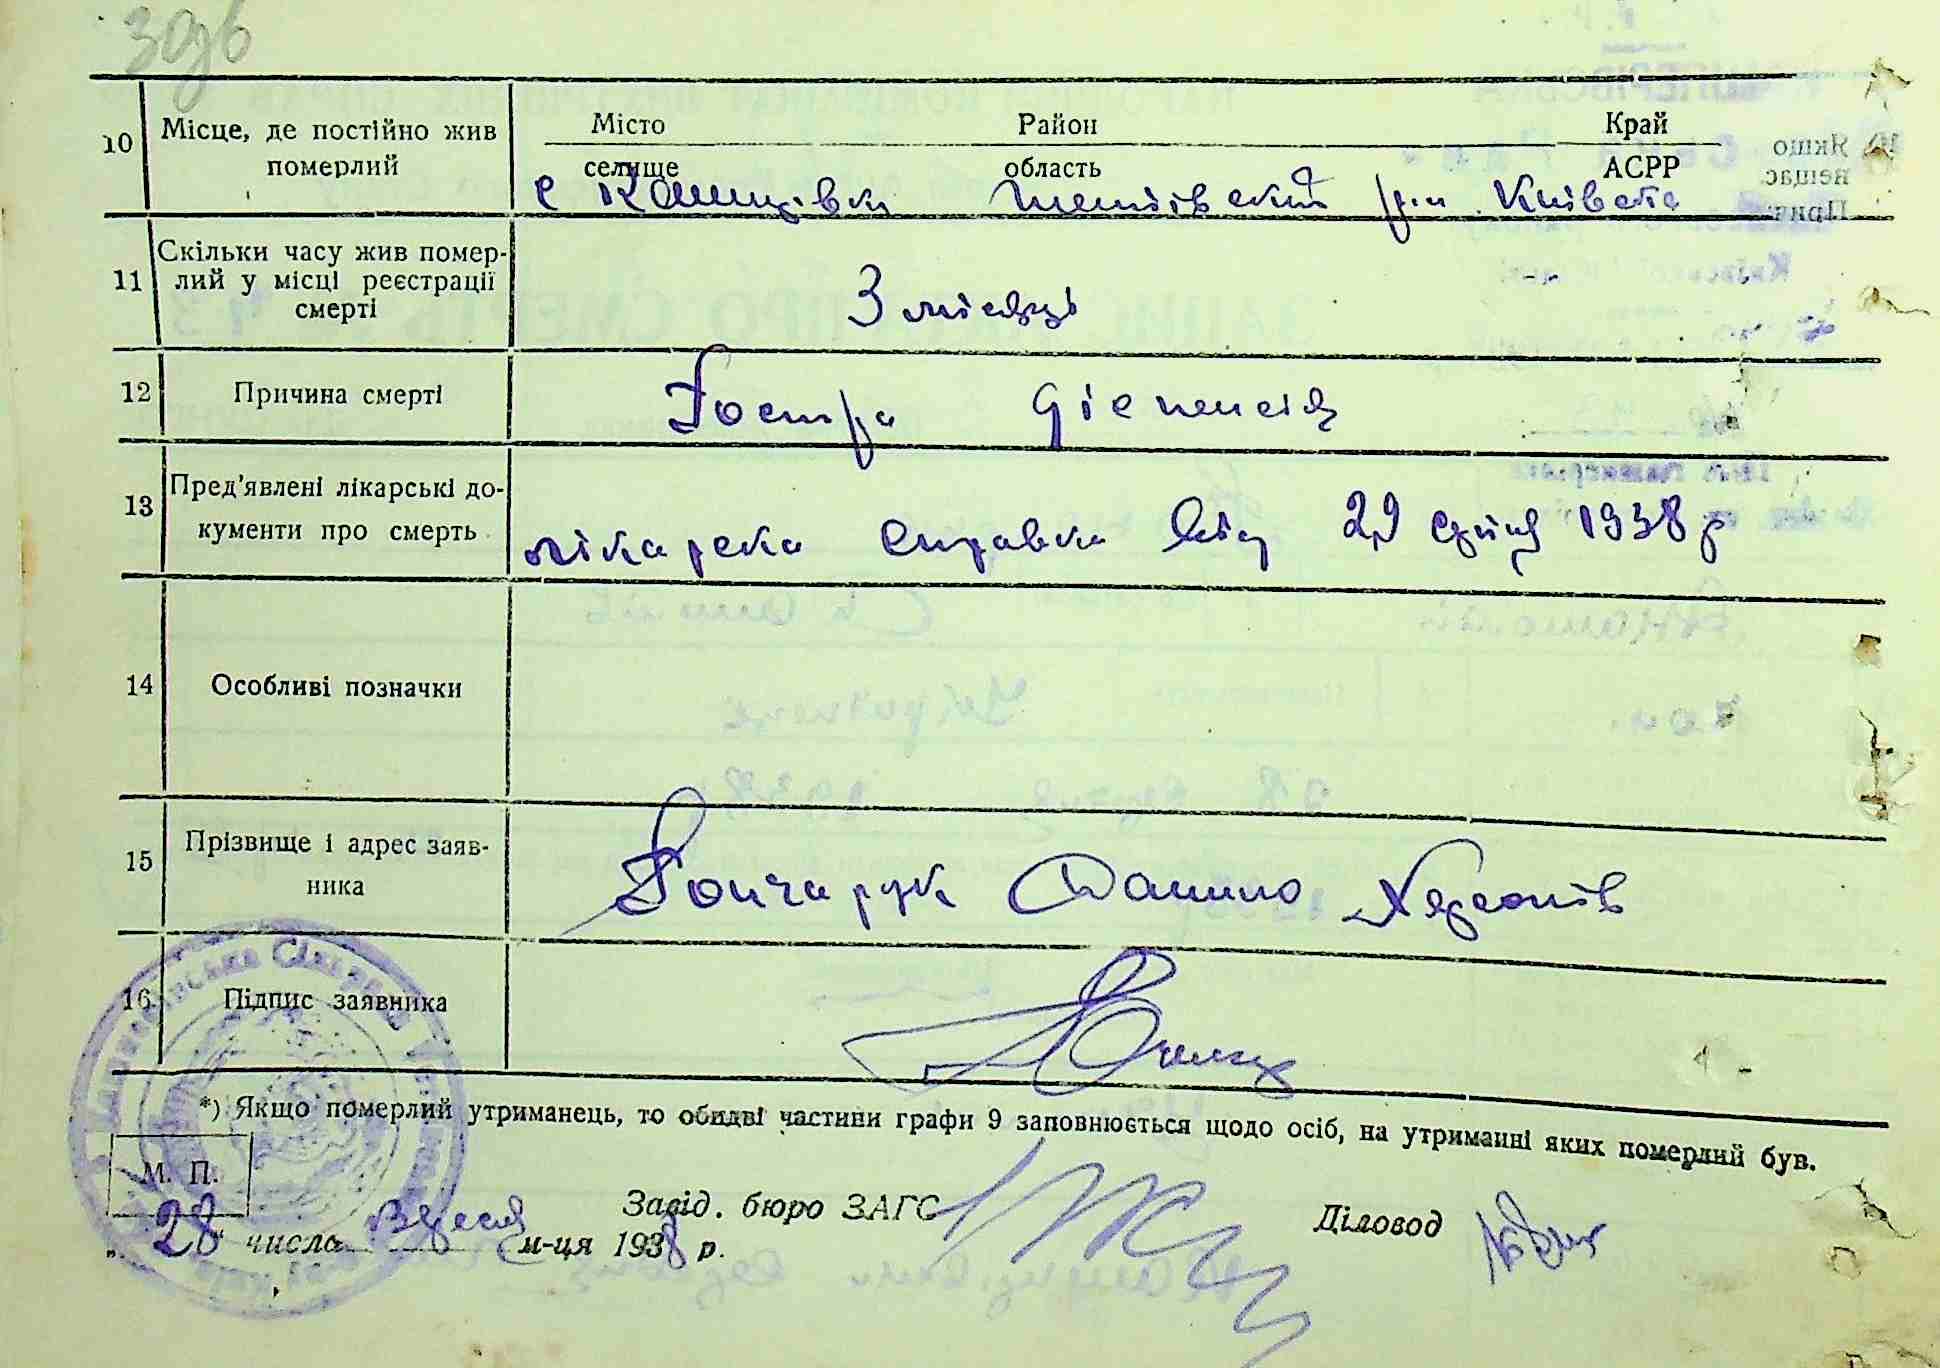 10 Місце, де постійно жив померлий
Місто Район Край
селище область АСРР
с
11 Скільки часу жив помер-
лий у місці реєстрації
смерті
3 місяці
12 Причина смерті
Гостра діспепсія
13 Пред'явлені лікарські до-
кументи про смерть
лікарска справка від 29 1938 р
14 Особливі позначки
15 Прізвище і адрес заяв-
ника
Гончарук Данило
16 Підпис заявника
*) Якщо померлий утриманець, то обидві частини графи 9 заповнюється щодо осіб, на утриманні яких померлий був.
М. П.
Завід. бюро ЗАГС Діловод
„ 28 числа Вересня м-ця 1938 р.